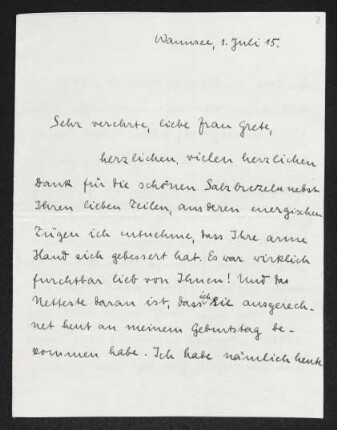 2
Wannsee, 1. Juli 15.
Sehr verehrte, liebe Frau Grete,
herzlichen, vielen herzlichen
Dank für die schönen Salzbrezeln nebst
Ihren lieben Zeilen, aus deren energischen
Zügen ich entnehme, dass Ihre arme
Hand sich gebessert hat. Es war wirklich
furchtbar lieb von Ihnen! Und das
Netteste daran ist, dass ich sie ausgerech-
net heut an meinem Geburtstag be-
kommen habe. Ich habe nämlich heute